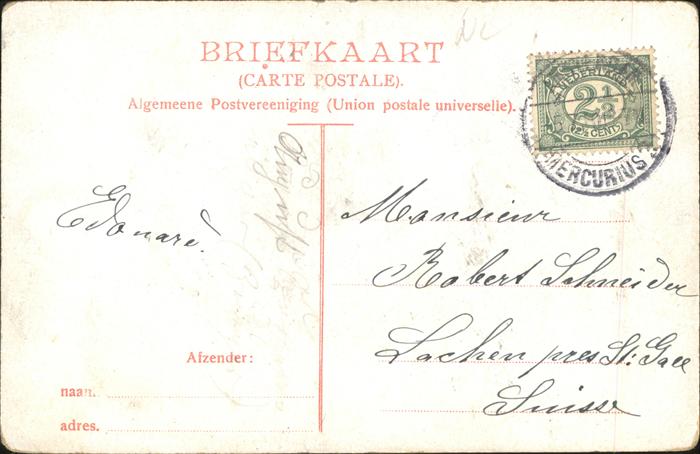 BRIEFKAART
(CARTE POSTALE).
Algemeene Postvereeniging (Union postale universelle).
NEDERLAND
2½
2½ CENTS
MERCURIUS
Edouard.
Monsieur
Robert Schneider
Lachen pres St. Gall
Suisse
Afzender:
naam.
adres.